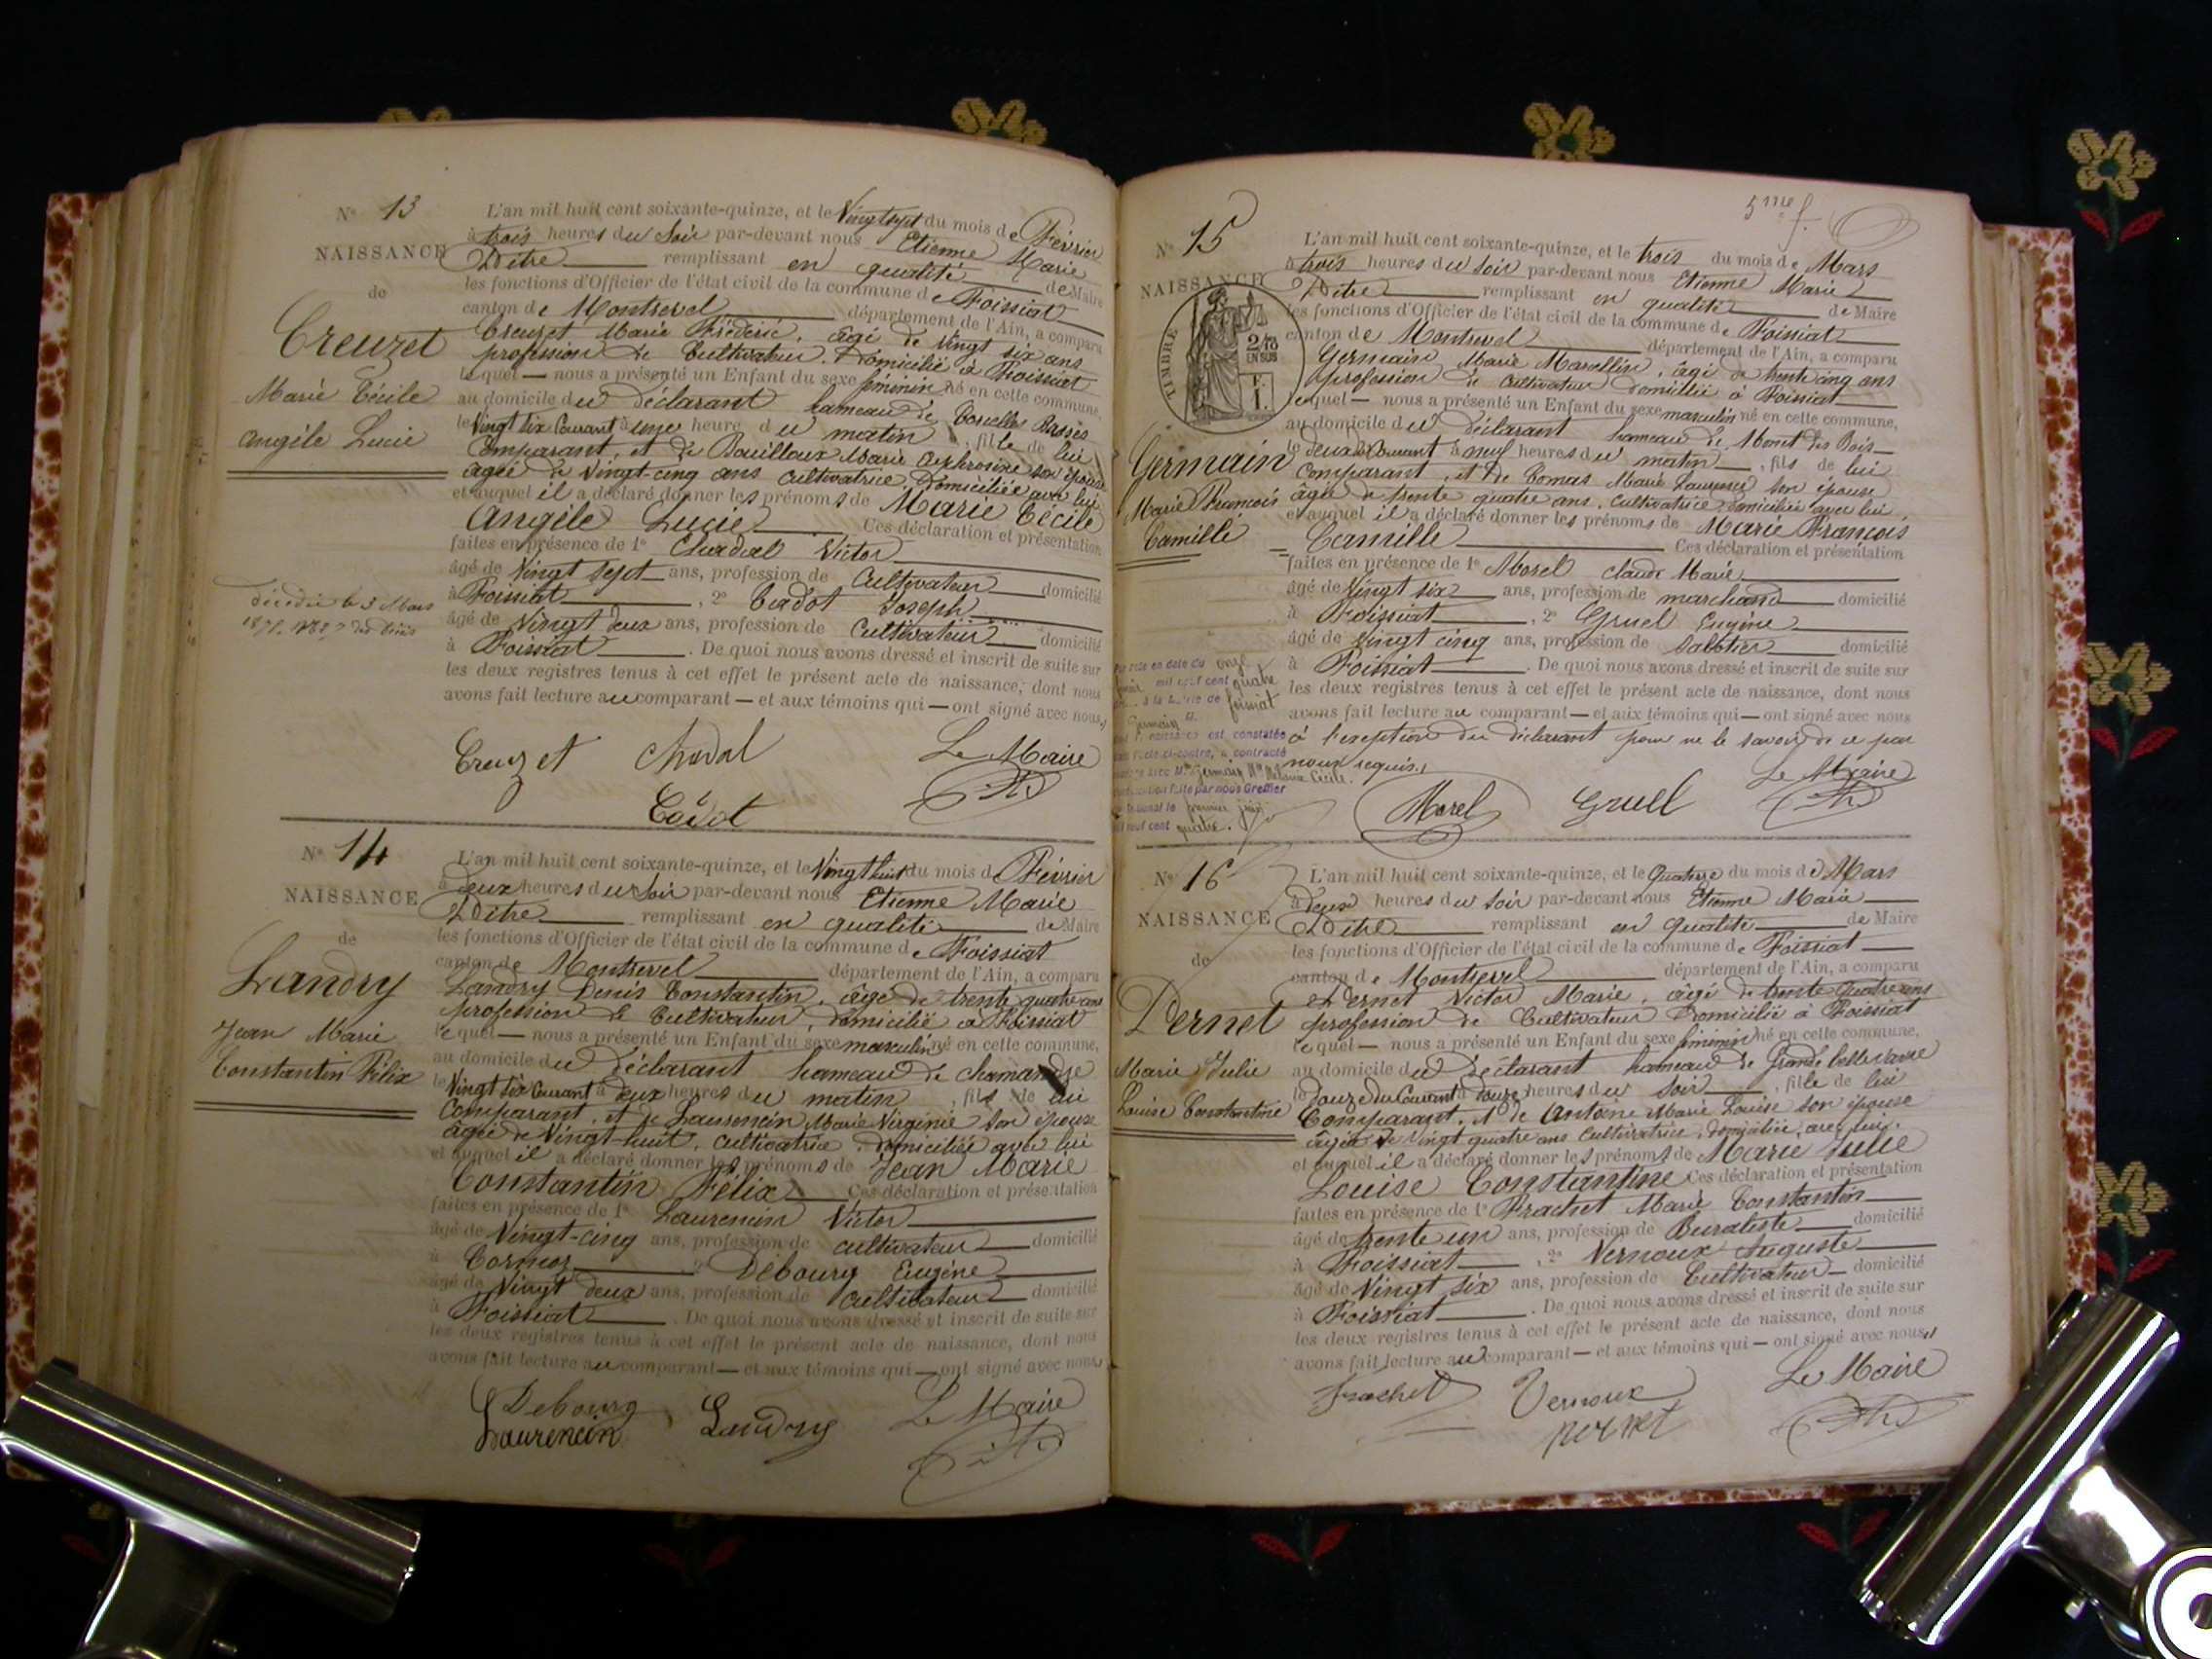 N° 13
NAISSANCE
de
Creuzet
Marie Cécile
Angèle Lucie
décédée le 3 Mars
L'an mil huit cent soixante-quinze, et le Vingt sept du mois de Février
à trois heures du Soir par-devant nous Etienne Marie
remplissant en qualité de Maire
les fonctions d'Officier de l'état civil de la commune de Foissiat
canton de Montrevel département de l'Ain, a comparu
Creuzet Marie Frédéric, âgé de Vingt six ans
profession de Cultivateur, domicilié à Foissiat
lequel — nous a présenté un Enfant du sexe féminin né en cette commune,
au domicile du déclarant hameau de
le Vingt six Courant à une heure du matin, fille de lui
Comparant, et de Bouilloux Marie son épouse
âgée de Vingt-cinq ans cultivatrice, domiciliée avec lui
et auquel il a déclaré donner les prénoms de Marie Cécile
Angèle Lucie Ces déclaration et présentation
faites en présence de 1° Chadal Victor
âgé de Vingt sept ans, profession de Cultivateur domicilié
à Foissiat, 2° Cadot Joseph
âgé de Vingt deux ans, profession de Cultivateur domicilié
à Foissiat. De quoi nous avons dressé et inscrit de suite sur
les deux registres tenus à cet effet le présent acte de naissance, dont nous
avons fait lecture au comparant — et aux témoins qui — ont signé avec nous,
Creuzet Chadal Le Maire
Cadot
N° 14
NAISSANCE
de
Landry
Jean Marie
Constantin Félix
L'an mil huit cent soixante-quinze, et le Vingt huit du mois de Février
à deux heures du Soir par-devant nous Etienne Marie
remplissant en qualité de Maire
les fonctions d'Officier de l'état civil de la commune de Foissiat
canton de Montrevel département de l'Ain, a comparu
Landry Denis Constantin, âgé de trente quatre ans
profession de Cultivateur, domicilié à Foissiat
lequel — nous a présenté un Enfant du sexe masculin né en cette commune,
au domicile du déclarant hameau de chamandre
le Vingt six Courant à deux heures du matin, fils de lui
Comparant, et de Laurencin Marie Virginie son épouse
âgée de Vingt-huit, cultivatrice, domiciliée avec lui
et auquel il a déclaré donner les prénoms de Jean Marie
Constantin Félix Ces déclaration et présentation
faites en présence de 1° Laurencin Victor
âgé de Vingt-cinq ans, profession de cultivateur domicilié
à Cormoz, 2° Debourg Eugène
âgé de Vingt deux ans, profession de cultivateur domicilié
à Foissiat. De quoi nous avons dressé et inscrit de suite sur
les deux registres tenus à cet effet le présent acte de naissance, dont nous
avons fait lecture au comparant — et aux témoins qui — ont signé avec nous,
Debourg Landry Le Maire
Laurencin
5me f.
N° 15
NAISSANCE
TIMBRE
2/10
EN SUS
Germain
Marie François
Camille
L'an mil huit cent soixante-quinze, et le trois du mois de Mars
à trois heures du Soir par-devant nous Etienne Marie
remplissant en qualité de Maire
les fonctions d'Officier de l'état civil de la commune de Foissiat
canton de Montrevel département de l'Ain, a comparu
Germain Marie Marcellin, âgé de trente cinq ans
profession de cultivateur domicilié à Foissiat
lequel — nous a présenté un Enfant du sexe masculin né en cette commune,
au domicile du déclarant hameau de Mont des Bois
le deux du Courant à neuf heures du matin, fils de lui
Comparant, et de Comas Marie Laurence son épouse
âgée de trente quatre ans, cultivatrice domiciliée avec lui,
et auquel il a déclaré donner les prénoms de Marie François
Camille Ces déclaration et présentation
faites en présence de 1° Morel Claude Marie
âgé de Vingt six ans, profession de marchand domicilié
à Foissiat, 2° Gruel Eugène
âgé de Vingt cinq ans, profession de Sabotier domicilié
à Foissiat. De quoi nous avons dressé et inscrit de suite sur
les deux registres tenus à cet effet le présent acte de naissance, dont nous
avons fait lecture au comparant — et aux témoins qui — ont signé avec nous
à l'exception du déclarant pour ne le savoir de ce par
nous requis.
Le Maire
Morel Gruel
acte en date du onze
mil neuf cent quatre
à la Mairie de foissiat
Germain
naissance est constatée
l'acte ci-contre, a contracté
avec Mlle Germain Mie Mélanie Cécile.
faite par nous Greffier
le premier juin
neuf cent quatre.
N° 16
NAISSANCE
de
Pernet
Marie Julie
Louise Constantine
L'an mil huit cent soixante-quinze, et le Quatorze du mois de Mars
à deux heures du Soir par-devant nous Etienne Marie
remplissant en qualité de Maire
les fonctions d'Officier de l'état civil de la commune de Foissiat
canton de Montrevel département de l'Ain, a comparu
Pernet Victor Marie, âgé de trente quatre ans
profession de Cultivateur domicilié à Foissiat
lequel — nous a présenté un Enfant du sexe féminin né en cette commune,
au domicile du déclarant hameau de Grande
le douze du Courant à douze heures du Soir, fille de lui
Comparant, et de Antoine Marie Louise son épouse
âgée de vingt quatre ans cultivatrice, domiciliée, avec lui.
et auquel il a déclaré donner les prénoms de Marie Julie
Louise Constantine Ces déclaration et présentation
faites en présence de 1° Frachet Marie Constantin
âgé de trente un ans, profession de Buraliste domicilié
à Foissiat, 2° Vernoux Auguste
âgé de Vingt six ans, profession de Cultivateur domicilié
à Foissiat. De quoi nous avons dressé et inscrit de suite sur
les deux registres tenus à cet effet le présent acte de naissance, dont nous
avons fait lecture au comparant — et aux témoins qui — ont signé avec nous,
Frachet Vernoux Le Maire
pernet